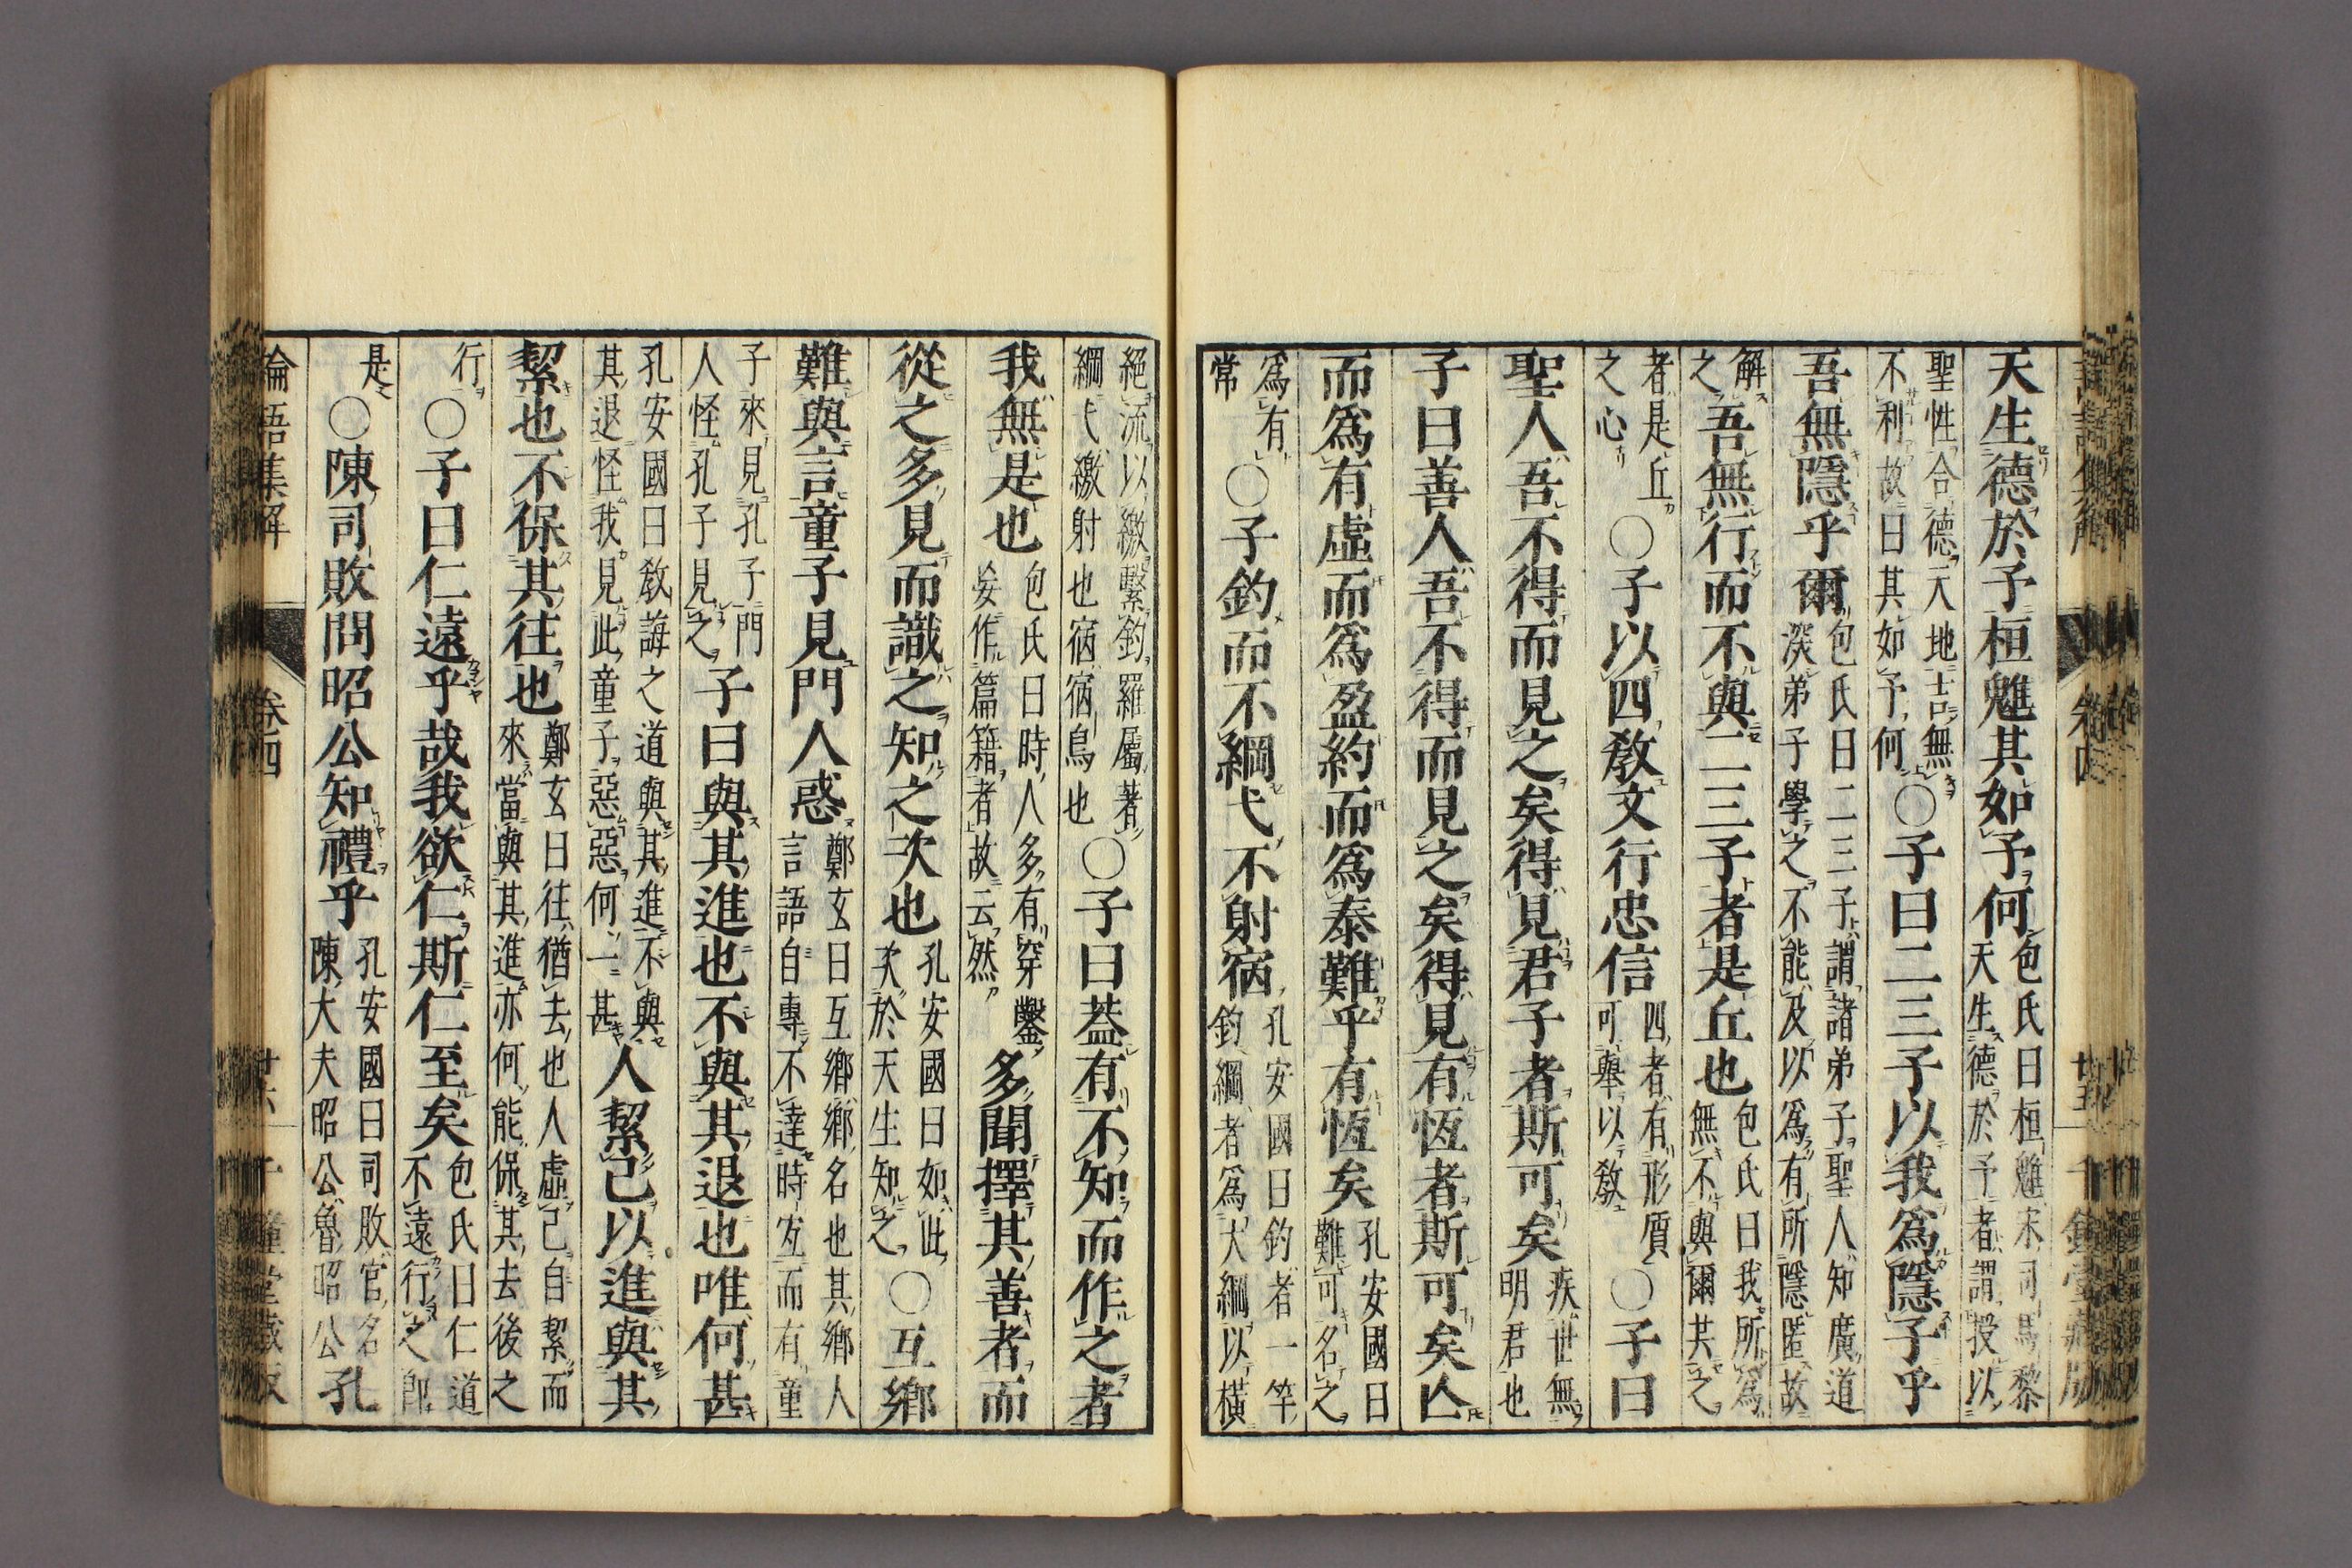 天生德於予桓魋其如予何包氏曰桓魋宋司馬黎
天生德於予者謂授以
聖性合德天地吉無
不利故曰其如予何○子曰二三子以我爲隱子乎
吾無隱乎爾包氏曰二三子謂諸弟子聖人知廣道
深弟子學之不能及以爲有所隱匿故
解之吾無行而不與二三子者是丘也包氏曰我所爲
無不與爾共之
者是丘
之心○子以四敎文行忠信四者有形質
可舉以敎○子曰
聖人吾不得而見之矣得見君子者斯可矣疾世無
明君也
子曰善人吾不得而見之矣得見有恆者斯可矣亾
而爲有虛而爲盈約而爲泰難乎有恆矣孔安國曰
難可名之
爲有
常○子釣而不綱弋不射宿孔安國曰釣者一竿
釣綱者爲大綱以橫
絕流以繳繫釣羅屬著
綱弋繳射也宿宿鳥也○子曰葢有不知而作之者
我無是也包氏曰時人多有穿鑿
妄作篇籍者故云然多聞擇其善者而
從之多見而識之知之次也孔安國曰如此
次於天生知之○互鄉
難與言童子見門人惑鄭玄曰互鄉鄉名也其鄉人
言語自專不達時宐而有童
子來見孔子門
人怪孔子見之子曰與其進也不與其退也唯何甚
孔安國曰敎誨之道與其進不與
其退怪我見此童子惡惡何一甚人絜己以進與其
絜也不保其往也鄭玄曰往猶去也人虛己自絜而
來當與其進亦何能保其去後之
行○子曰仁遠乎哉我欲仁斯仁至矣包氏曰仁道
不遠行之卽
是○陳司敗問昭公知禮乎孔安國曰司敗官名
陳大夫昭公魯昭公孔
論語集解 卷四 廿六 千鍾堂藏版